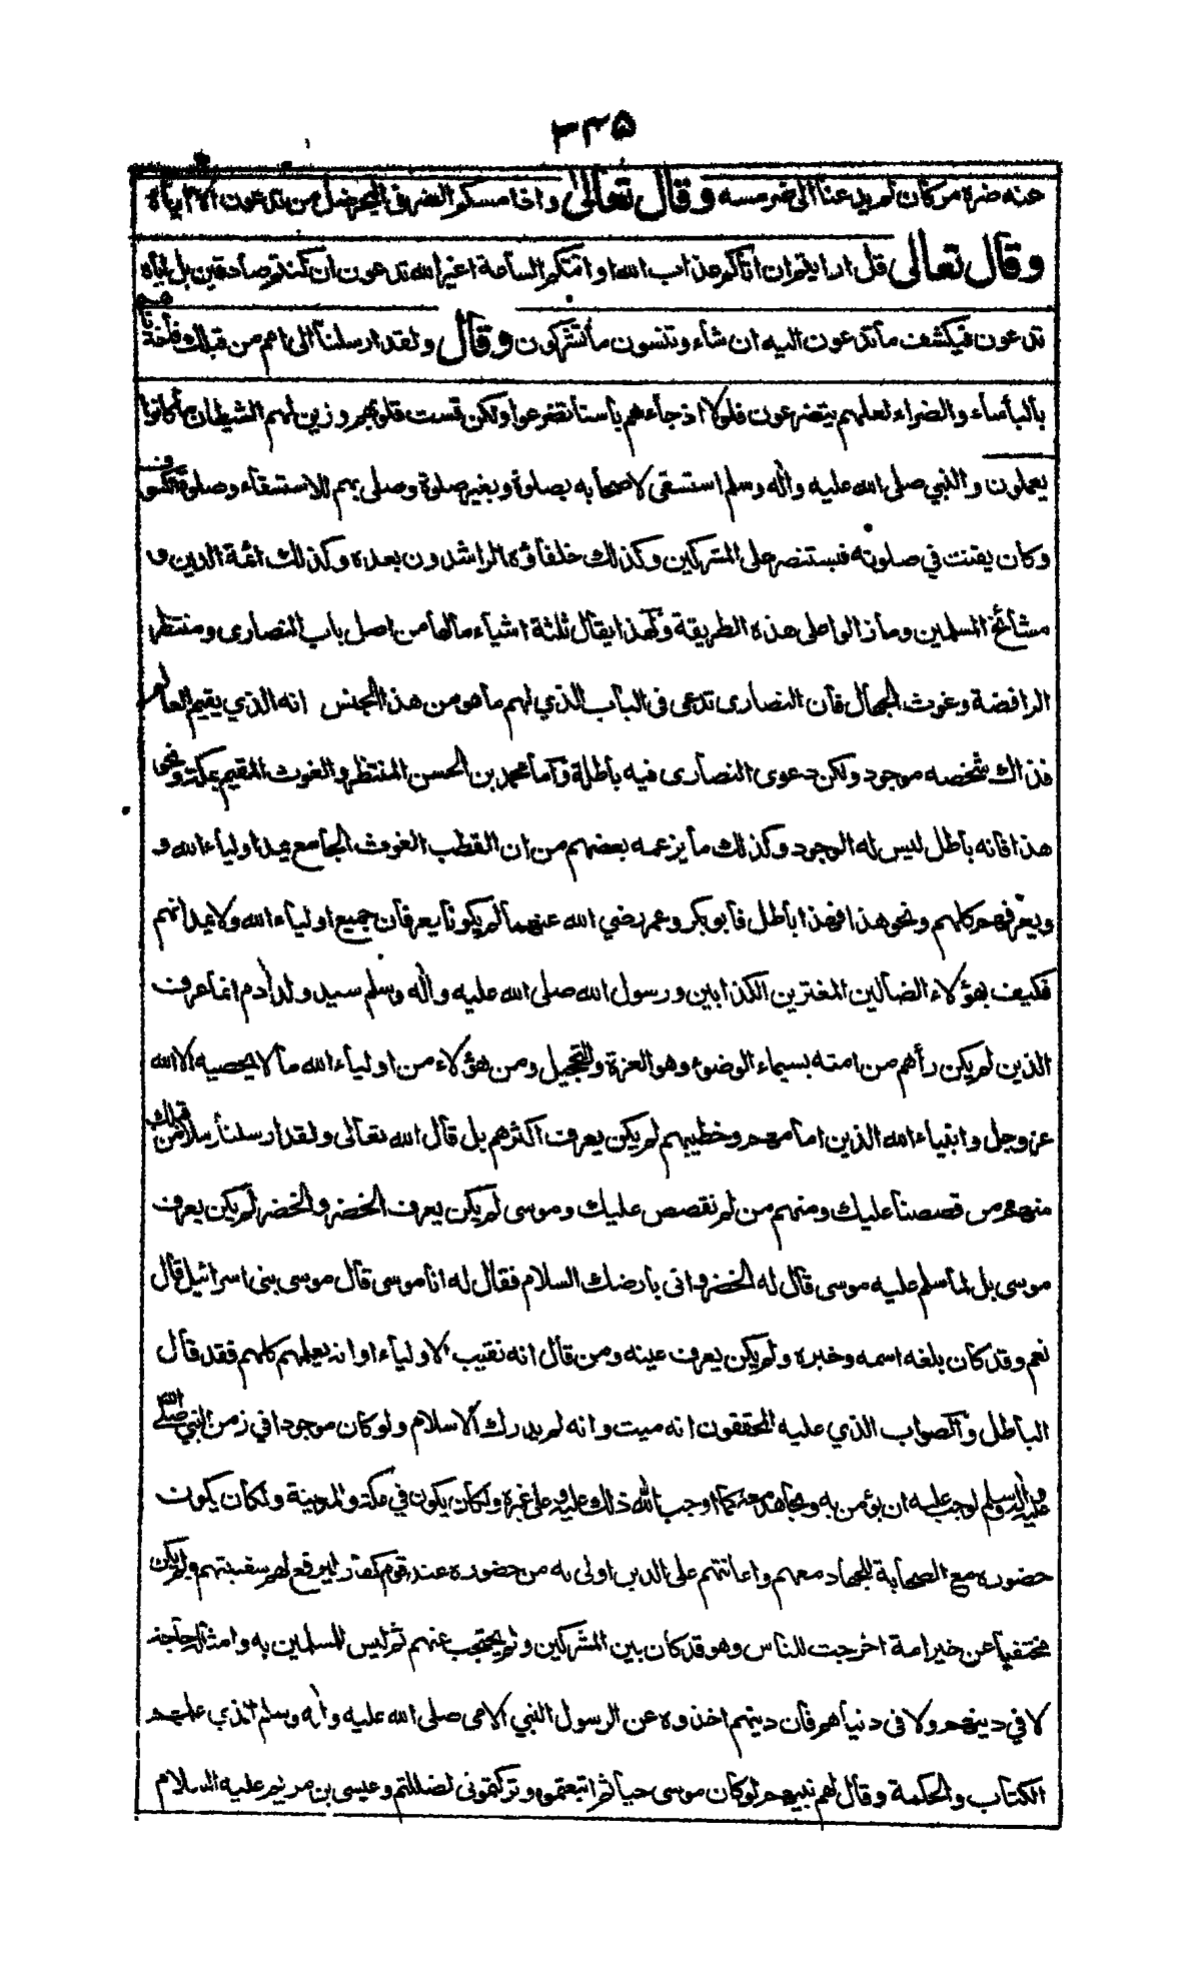 ٣٣٥
عنه ضره مر كأن لم يدعنا الى ضر مسه وقال تعالى واذا مسكم الضر فى البحر ضل من تدعون الا اياه
وقال تعالى قل ارايتم ان اتاكم عذاب الله او اتتكم الساعة اغير الله تدعون ان كنتم صادقين بل اياه
تدعون فيكشف ما تدعون اليه ان شاء وتنسون ما تشركون وقال ولقد ارسلنا الى امم من قبلك فأخذنا هم
بالبأساء والضراء لعلهم يتضرعون فلولا اذ جاءهم بأسنا تضرعوا ولكن قست قلوبهم وزين لهم الشيطان ما كانوا
يعملون والنبي صلى الله عليه وآله وسلم استسقى لاصحابه بصلوة وبغير صلوة وصلى بهم للاستسقاء وصلوة الكسوف
وكان يقنت في صلوته فيستنصر على المشركين وكذلك خلفاؤه الراشدون بعده وكذلك ائمة الدين و
مشائخ المسلمين وما زالوا على هذه الطريقة ولهذا يقال ثلثة اشياء مالها من اصل باب النصارى ومنتظر
الرافضة وغوث الجهال فان النصارى تدعى فى الباب الذي لهم ما هو من هذا الجنس انه الذي يقيم العالم
فذاك شخصه موجود ولكن دعوى النصارى فيه باطلة وأما محمد بن الحسن المنتظر والغوث المقيم بمكة ونحو
هذا فانه باطل ليس له الوجود وكذلك ما يزعمه بعضهم من ان القطب الغوث الجامع يمد اولياء الله و
ويعرفهم كلهم ونحو هذا فهذا باطل فأبو بكر وعمر رضي الله عنهما لم يكونا يعرفان جميع اولياء الله ولا يمدانهم
فكيف بهؤلاء الضالين المغترين الكذابين ورسول الله صلى الله عليه وآله وسلم سيد ولد آدم انما عرف
الذين لم يكن رأهم من امته بسيماء الوضوء وهو الغرة والتحجيل ومن هؤلاء من اولياء الله ما لا يحصيه الا الله
عز وجل وانبياء الله الذين امامهم وخطيبهم لم يكن يعرف اكثرهم بل قال الله تعالى ولقد ارسلنا رسلا من قبلك
منهم من قصصنا عليك ومنهم من لم نقصص عليك وموسى لم يكن يعرف الخضر والخضر لم يكن يعرف
موسى بل لما سلم عليه موسى قال له الخضر وانى بارضك السلام فقال له انا موسى قال موسى بنى اسرائيل قال
نعم وقد كان بلغه اسمه وخبره ولم يكن يعرف عينه ومن قال انه نقيب الاولياء او انه يعلمهم كلهم فقد قال
الباطل والصواب الذي عليه المحققون انه ميت وانه لم يدرك الاسلام ولو كان موجودا في زمن النبي صلى الله
عليه وآله وسلم لوجب عليه ان يؤمن به ويجاهد معه كما اوجب الله ذلك عليه وعلى غيره ولكان يكون في مكة والمدينة ولكان يكون
حضوره مع الصحابة للجهاد معهم واعانتهم على الدين اولى به من حضوره عند قوم كفار ليرقع لهم سفينتهم ولم يكن
مختفيا عن خير امة اخرجت للناس وهو قد كان بين المشركين ولم يحتجب عنهم ثم ليس للمسلمين به وامثاله حاجة
لا في دينهم ولا فى دنياهم فان دينهم اخذوه عن الرسول النبي الامى صلى الله عليه وآله وسلم الذي علمهم
الكتاب والحكمة وقال لهم نبيهم لو كان موسى حيا ثم اتبعتموه وتركتمونى لضللتم وعيسى بن مريم عليه السلام